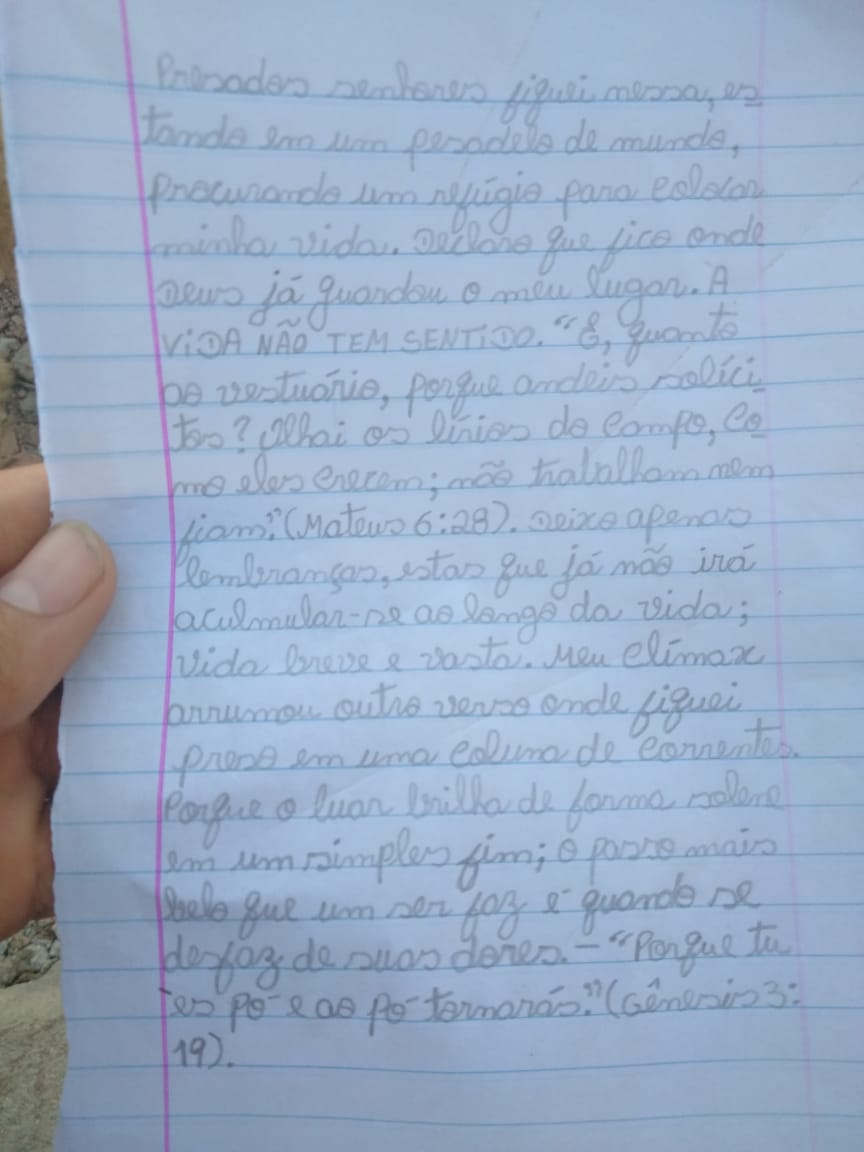 Presados senhores fiquei nessa, es
tando em um pesadelo de mundo,
procurando um refúgio para colocar
minha vida. Declaro que fico onde
Deus já guardou o meu lugar. A
VIDA NÃO TEM SENTIDO. "E, quanto
ao vestuário, porque andeis solíci
tos? Olhai os lírios do campo, co
mo eles crecem; não trabalham nem
fiam." (Mateus 6:28). Deixo apenas
lembranças, estas que já não irá
aculmular-se ao longo da vida;
vida breve e vasta. Meu clímax
arrumou outro verso onde fiquei
preso em uma coluna de correntes.
Porque o luar brilha de forma solene
em um simples fim; o passo mais
belo que um ser faz é quando se
desfaz de suas dores. - "Porque tu
és pó e ao pó tornarás." (Gênesis 3:
19).